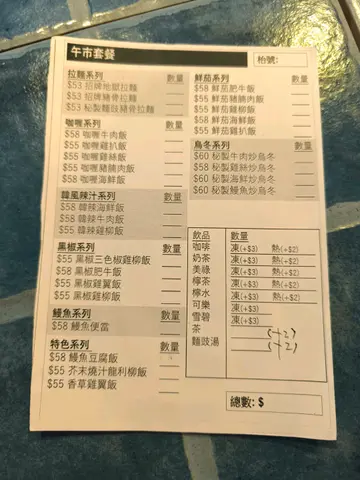 午巿套餐
枱號:
拉麵系列 數量
$53 招牌地獄拉麵
$53 招牌豬骨拉麵
$53 秘製麵豉豬骨拉麵
咖喱系列 數量
$58 咖喱牛肉飯
$55 咖喱雞扒飯
$55 咖喱雞絲飯
$55 咖喱豬腩肉飯
$58 咖喱海鮮飯
韓風辣汁系列
$58 韓辣海鮮飯
$58 韓辣牛肉飯
$55 韓辣雞柳飯
黑椒系列 數量
$55 黑椒三色椒雞柳飯
$58 黑椒肥牛飯
$55 黑椒雞翼飯
$55 黑椒雞柳飯
鰻魚系列 數量
$58 鰻魚便當
特色系列 數量
$58 鰻魚豆腐飯
$55 芥末燒汁龍利柳飯
$55 香草雞翼飯
鮮茄系列 數量
$58 鮮茄肥牛飯
$55 鮮茄豬腩肉飯
$55 鮮茄雞柳飯
$58 鮮茄海鮮飯
$55 鮮茄雞扒飯
烏冬系列 數量
$60 秘製牛肉炒烏冬
$58 秘製雞絲炒烏冬
$60 秘製海鮮炒烏冬
$60 秘製鰻魚炒烏冬
飲品 數量
咖啡 凍(+$3) 熱(+$2)
奶茶 凍(+$3) 熱(+$2)
美祿 凍(+$3) 熱(+$2)
檸茶 凍(+$3) 熱(+$2)
檸水 凍(+$3) 熱(+$2)
可樂 凍(+$3)
雪碧 凍(+$3)
茶 (+2)
麵豉湯 (+2)
總數: $